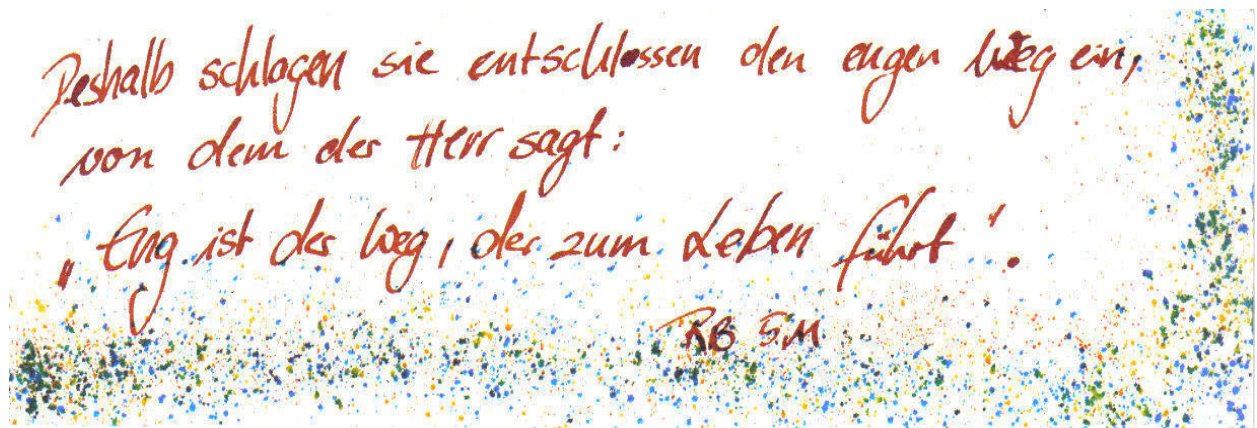 Deshalb schlagen sie entschlossen den engen Weg ein,
von dem der Herr sagt:
„Eng ist der Weg, der zum Leben führt".
RB 5.11